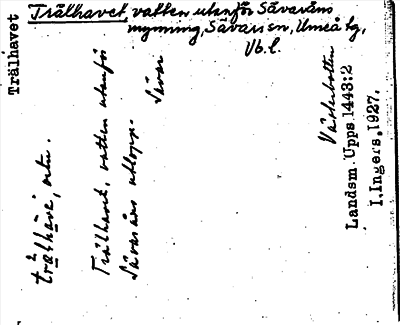 Trälhavet
Trälhavet, vatten utanför Sävaråns
mynning, Sävar sn, Umeå tg,
Vb. l.
trälhave, ortn.
Trälhavet, vatten utanför
Sävaråns utlopp.
Sävar
Västerbotten
Landsm. Upps. 1443:2
I. Ingers, 1927.